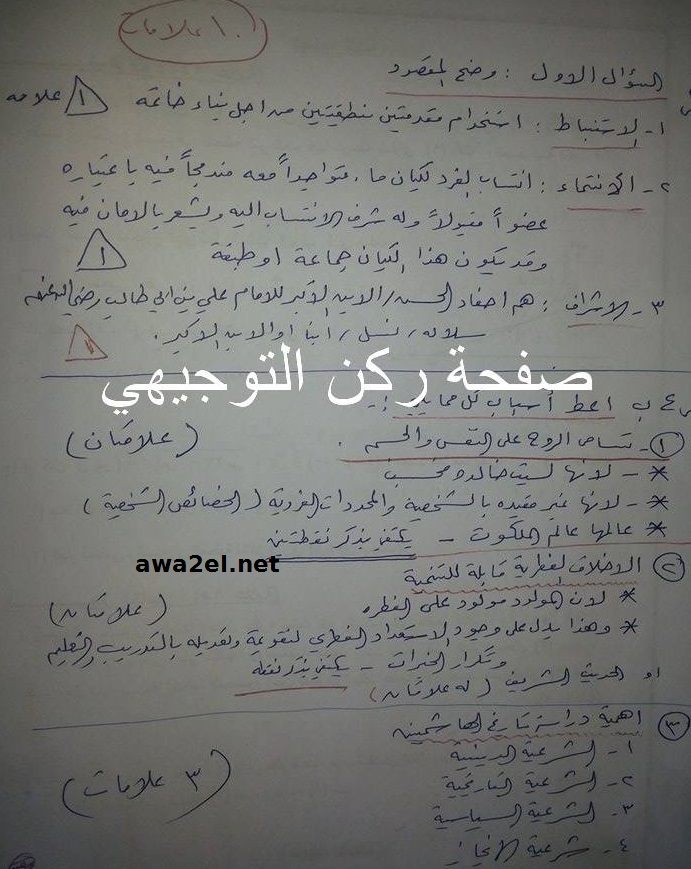 ١٠ علامات
السؤال الاول : وضح المقصود
١- الاستنباط : استخدام مقدمتين منطقيتين من اجل بناء خاتمة ١ علامه
٢- الانتماء : انتساب الفرد لكيان ما ، متواجداً معه مندمجاً فيه باعتباره
عضواً مقبولاً وله شرف الانتساب اليه ويشعر بالامان فيه
وقد يكون هذا الكيان جماعة او طبقة ١
٣- الاشراف : هم احفاد الحسن / الابن الاكبر للامام علي بن ابي طالب رضي الله عنه
سلاله / نسل / ابنا او الابن الاكبر .
صفحة ركن التوجيهي
ب اعط أسباب لكل مما يلي :-
١- تتسامى الروح على النفس والجسم . (علامتان)
* - لانها ليست خالده فحسب
* - لانها غير مقيده بالشخصية والمحددات الفردية (الخصائص الشخصية)
* عالمها عالم الملكوت - يكتفى بذكر نقطتين
awa2el.net
٢ الاخلاق الفطرية قابلة للتنمية
* لان المولود مولود على الفطره (علامتان)
* وهذا يدل على وجود الاستعداد الفطري لتقويمه وتعديله بالتدريب والتعليم
وتكرار الخبرات - يكتفى بذكر نقطه
او الحديث الشريف (له علامتان)
٣ اهمية دراسة تاريخ الهاشميين
١- الشرعية الدينية
٢- الشرعية التاريخية
(٣ علامات)
٣- الشرعية السياسية
٤- شرعية الانجاز